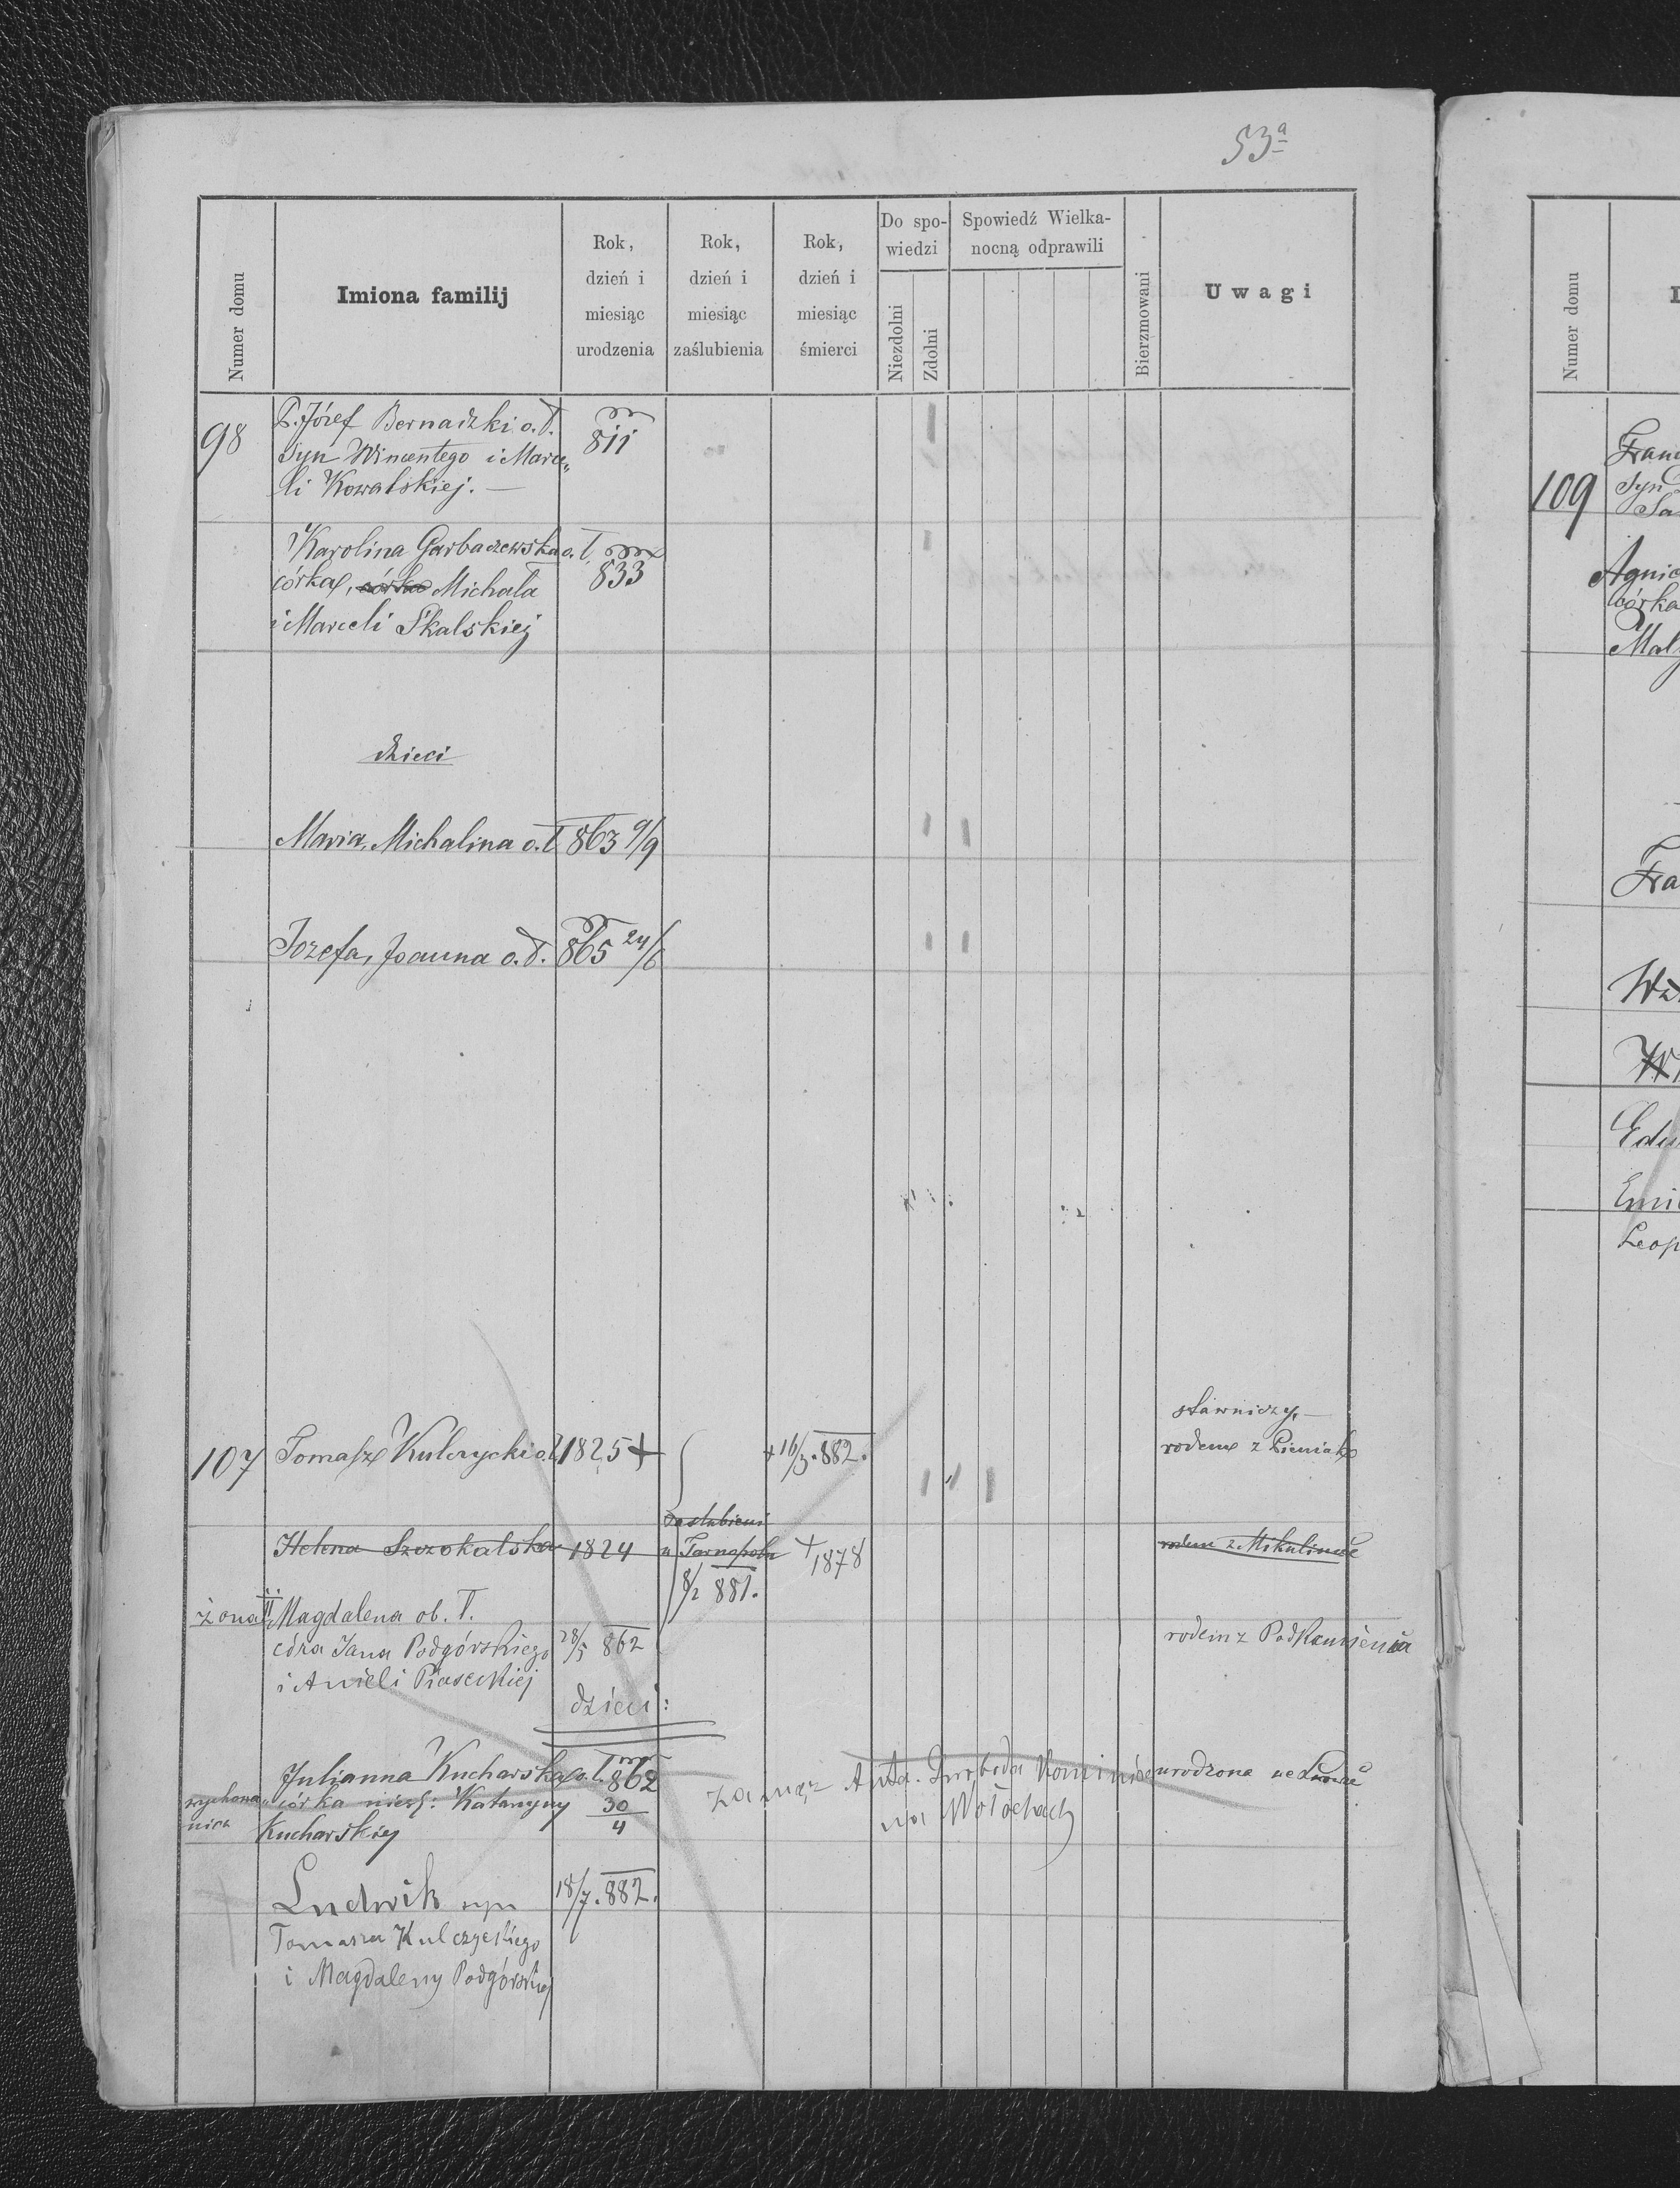 53a
Numer domu
Imiona familij
Rok,
dzień i
miesiąc
urodzenia
Rok,
dzień i
miesiąc
zaślubienia
Rok,
dzień i
miesiąc
śmierci
Do spo-
wiedzi
Niezdolni
Zdolni
Spowiedź Wielka-
nocną odprawili
Bierzmowani
Uwagi
98
P. Józef Bernadzki o. ł.
811
Syn Wincentego i Marce„
li Kowalskiej. —
Karolina Garbaczewska o. ł.
833
córka, córka Michała
i Marceli Skalskiej
dzieci
Maria, Michalina o. ł. 863 9/9
Jozefa, Joanna o. ł. 865 24/6
107
Tomasz Kulczycki o. ł. 1825 +
+ 16/3. 882.
stawniczy, —
rodem z Pieniak
Helena Szczokalska 1824
zaślubieni
w Tarnopolu
8/2 881.
+ 1878
rodem z Mikuliniec
żona II Magdalena ob. ł.
córa Jana Podgórskiego 28/5 862
i Anieli Piaseckiej
rodem z Podkamienia
dzieci:
Julianna Kucharska o. ł. 862
30
4
wychowa„
nica
córka nieś: Katarzyny
Kucharskiej
zamąż Anto. Swoboda Kominia
na Wołochach
urodzona we Lwowie
Ludwik syn 18/7. 882.
Tomasza Kulczyckiego
i Magdaleny Podgórskiej
Numer domu
109
Syn
Agnie
córka
Fra
Edu
Emi
Leop